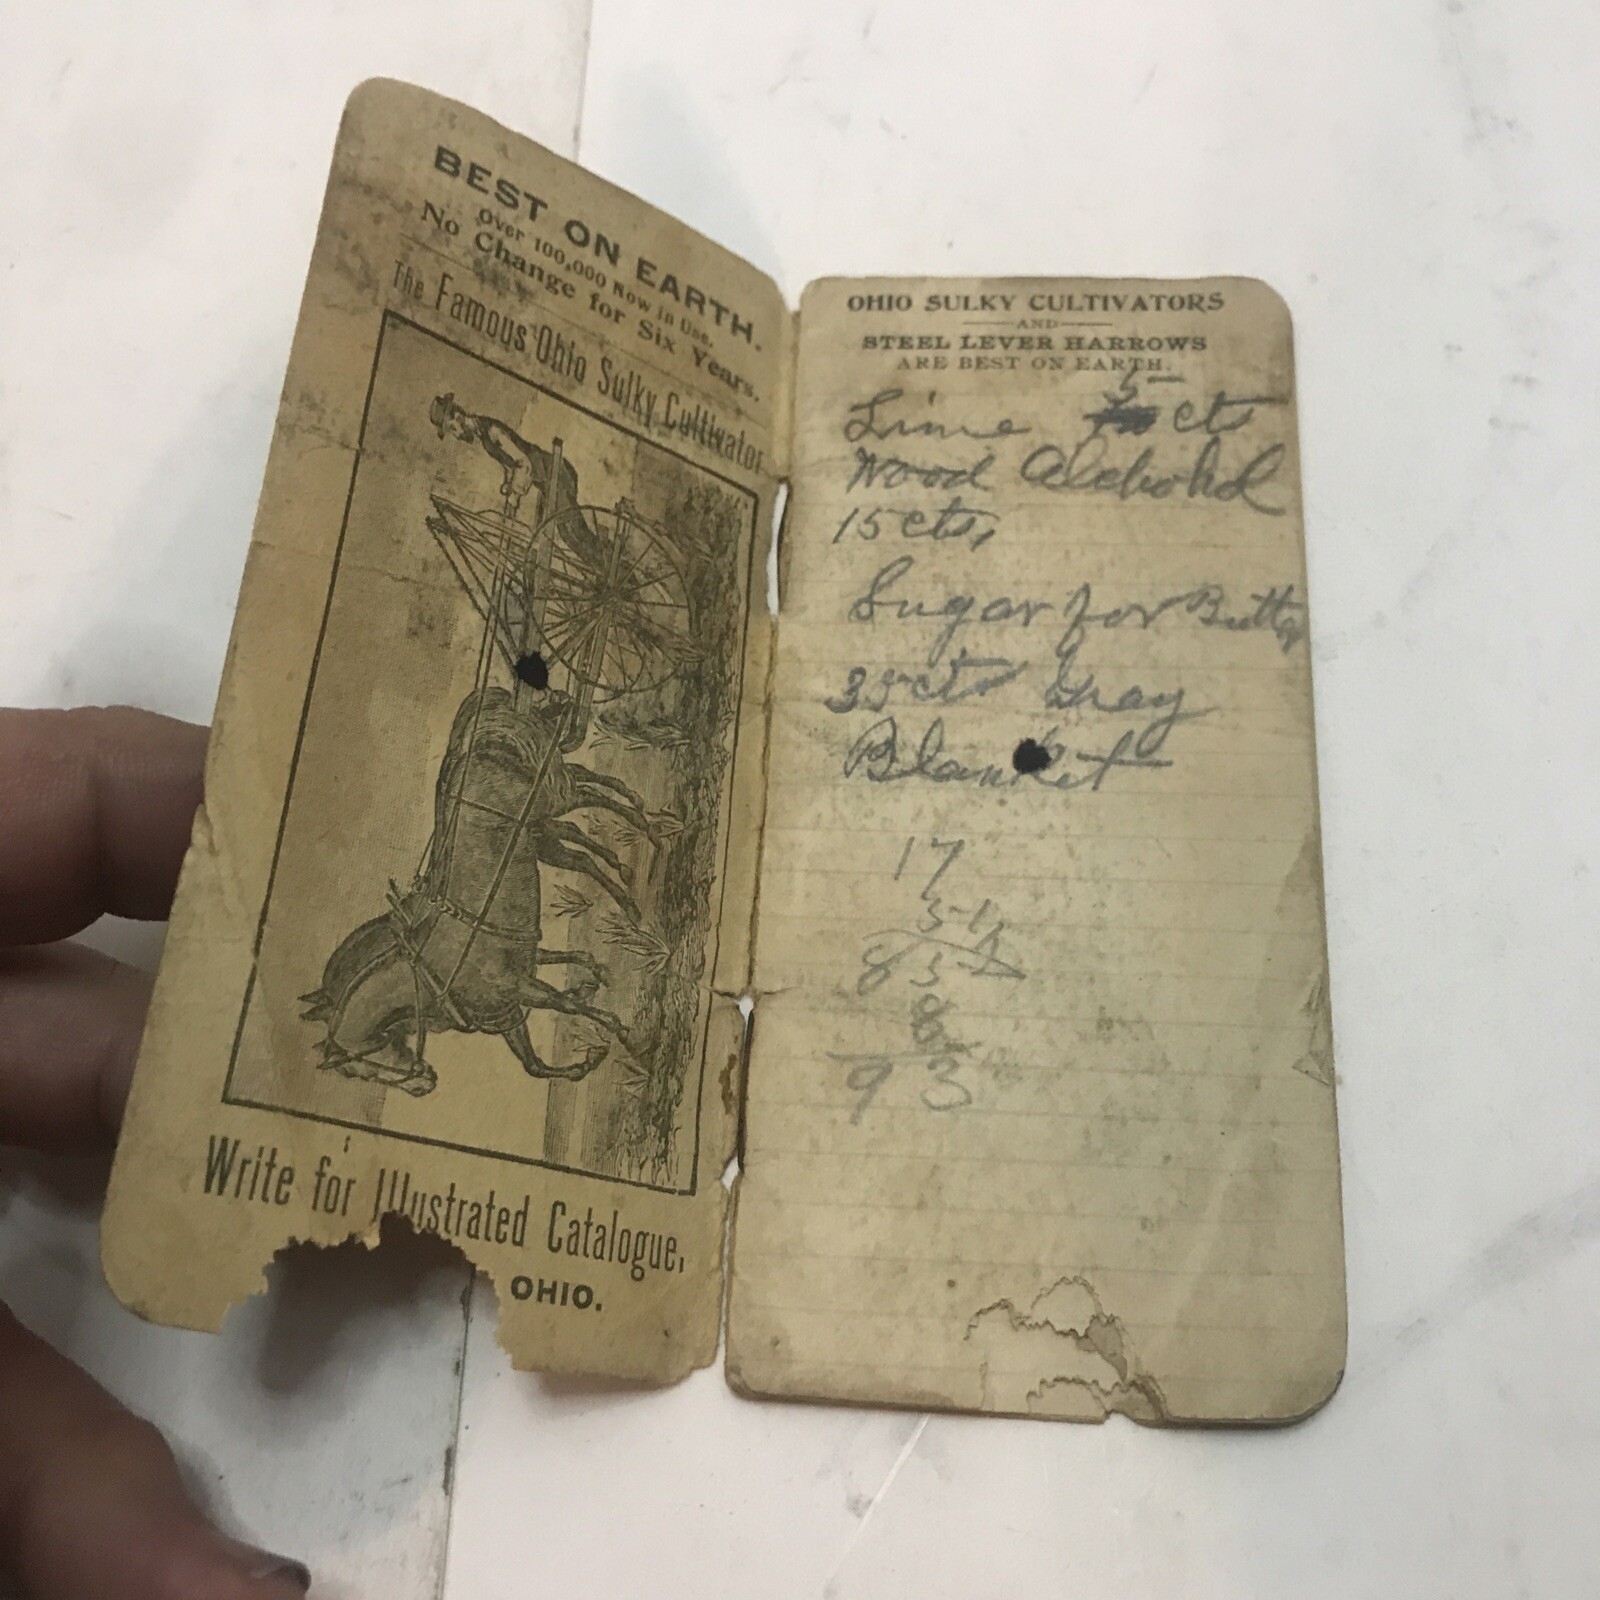 BEST ON EARTH.
Over 100,000 Now in Use.
No Change for Six Years.
The Famous Ohio Sulky Cultivator
Write for Illustrated Catalogue,
OHIO.
OHIO SULKY CULTIVATORS
AND
STEEL LEVER HARROWS
ARE BEST ON EARTH.
Lime 5 cts
Wood Alchohol
15 cts,
Sugar for Butter
35 cts Gray
Blanket
17
5 1/2
8 5
8
9 3